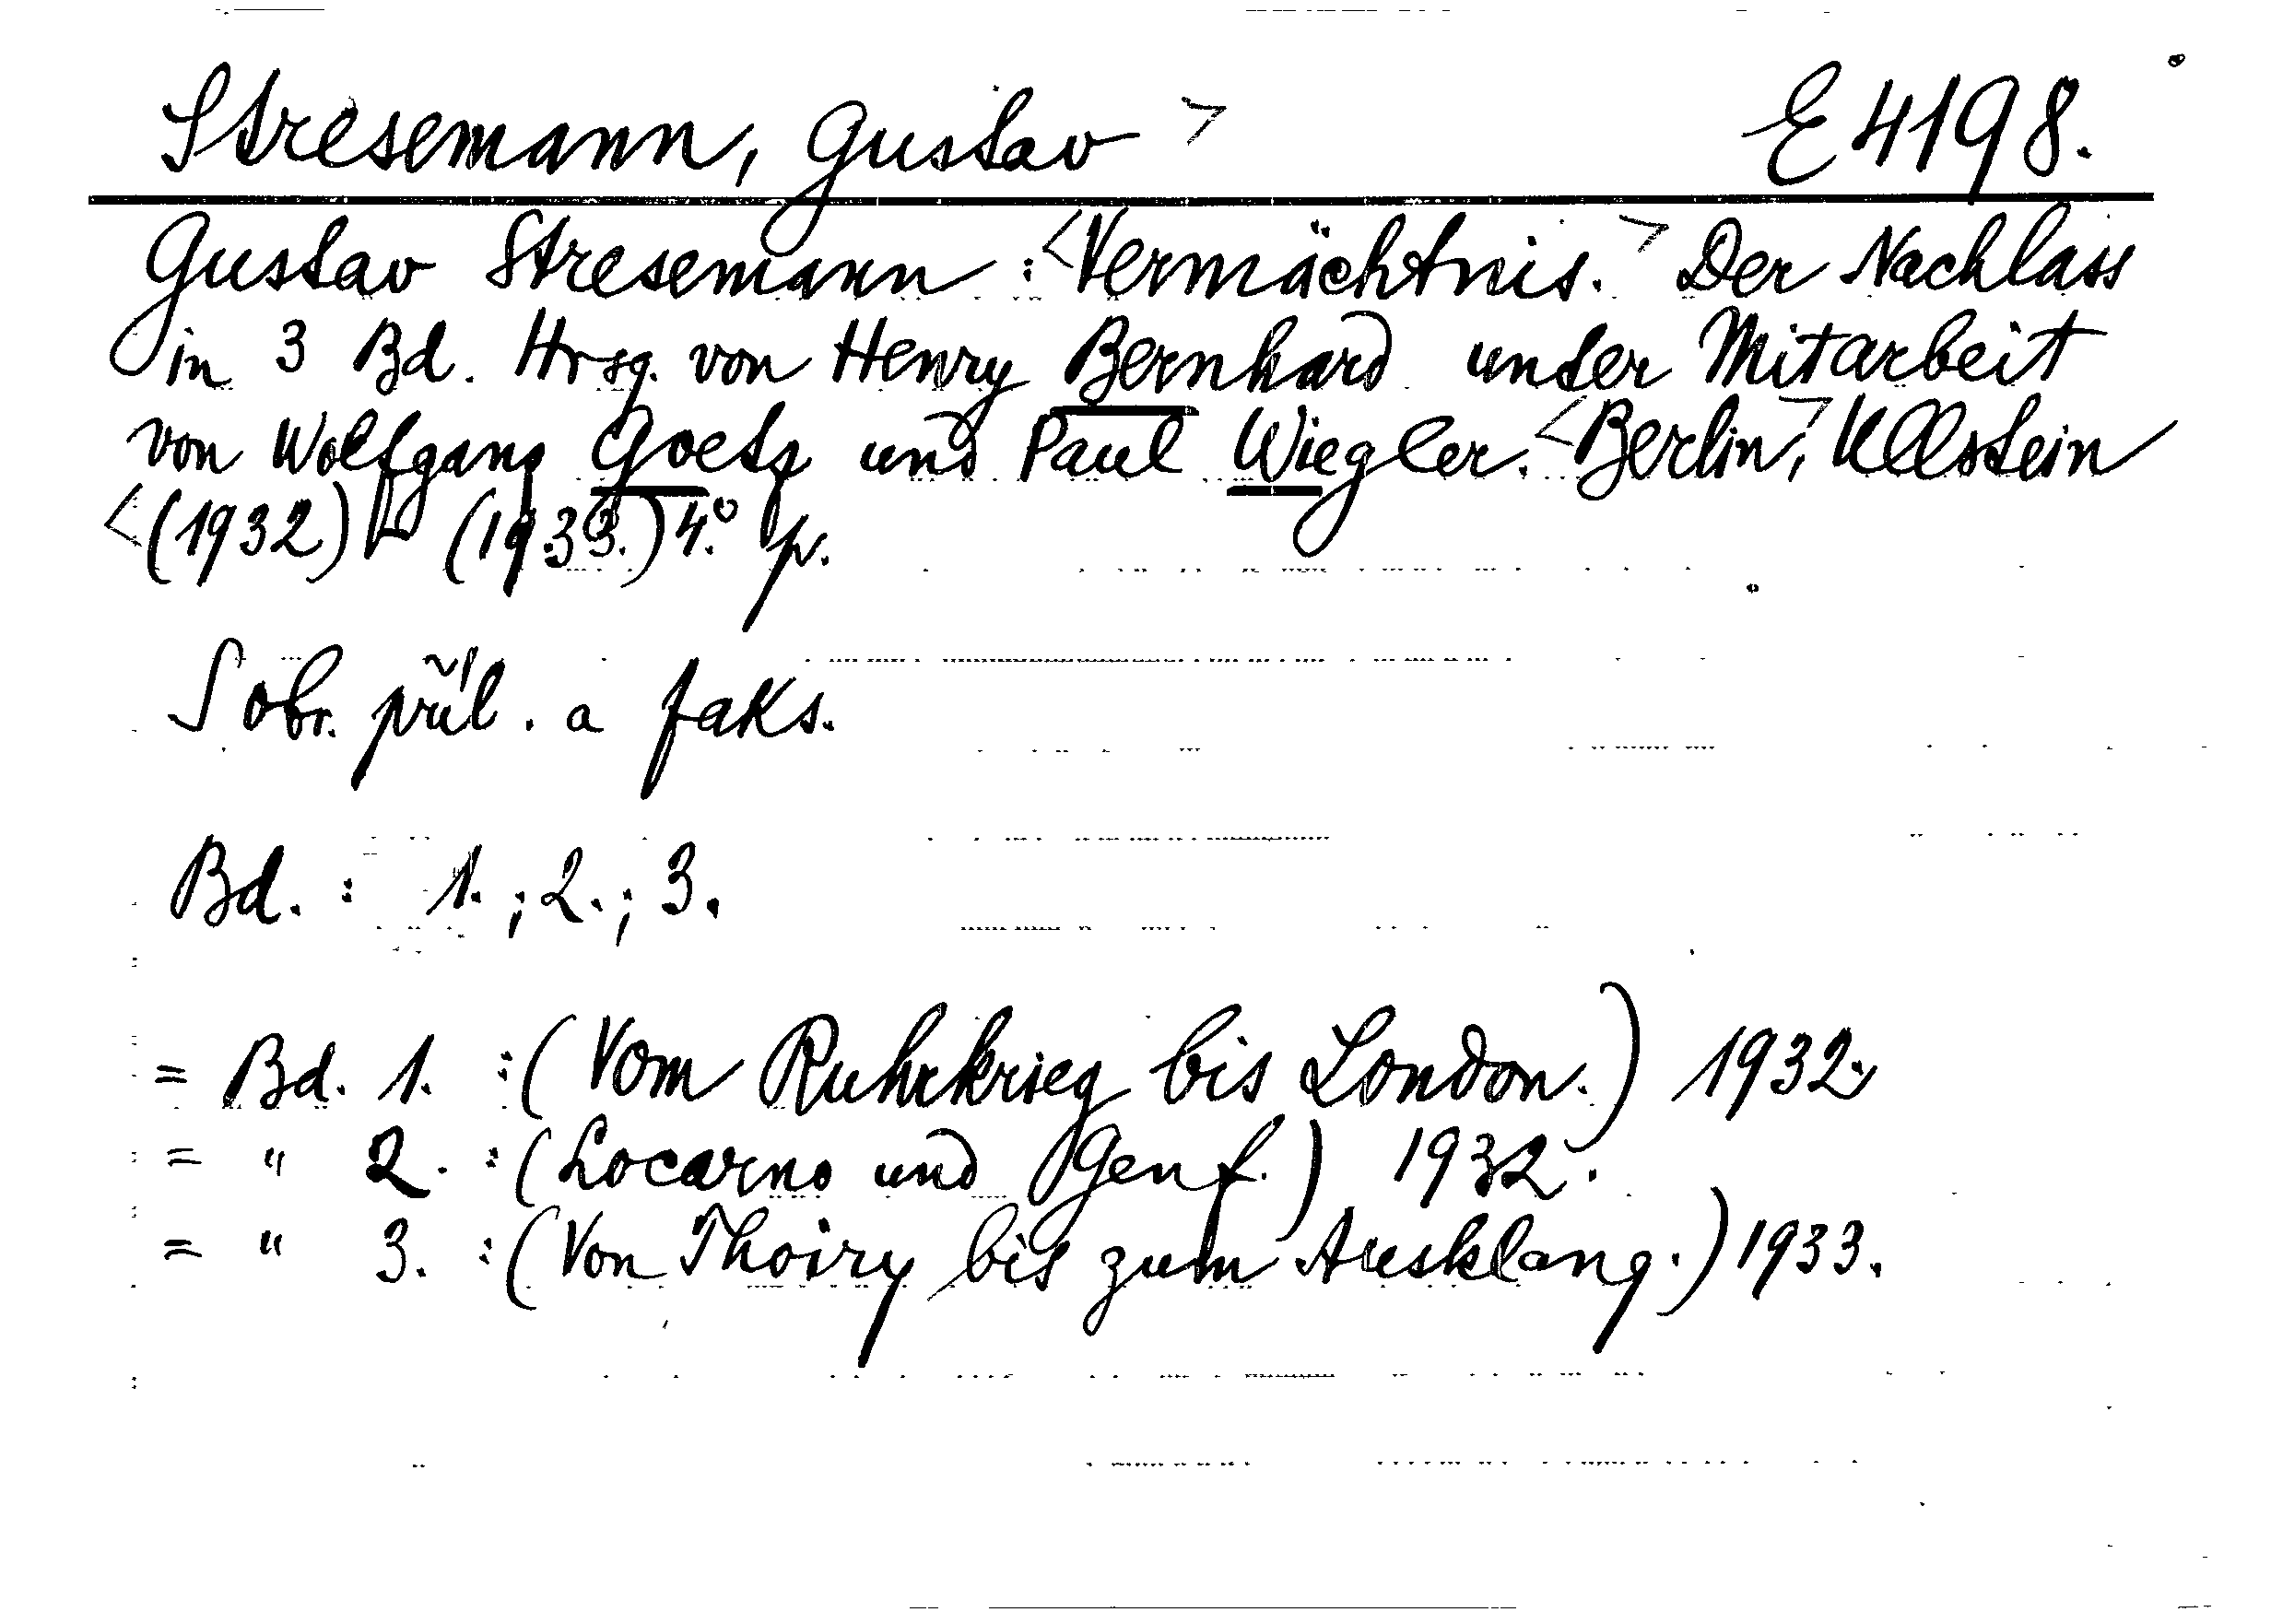 Stresemann, Gustav > E 4198.
Gustav Stresemann : <Vermächtnis.> Der Nachlass
in 3 Bd. Hrsg. von Henry Bernhard unter Mitarbeit
von Wolfgang Goetz und Paul Wiegler. <Berlin,> Ullstein
<(1932) - (1933.) 4.° p.
S obr. příl. a faks.
Bd. : 1. ; 2. ; 3.
= Bd. 1. : (Vom Ruhrkrieg bis London.) 1932.
= " 2. : (Locarno und Genf.) 1932.
= " 3. : (Von Thoiry bis zum Ausklang.) 1933.